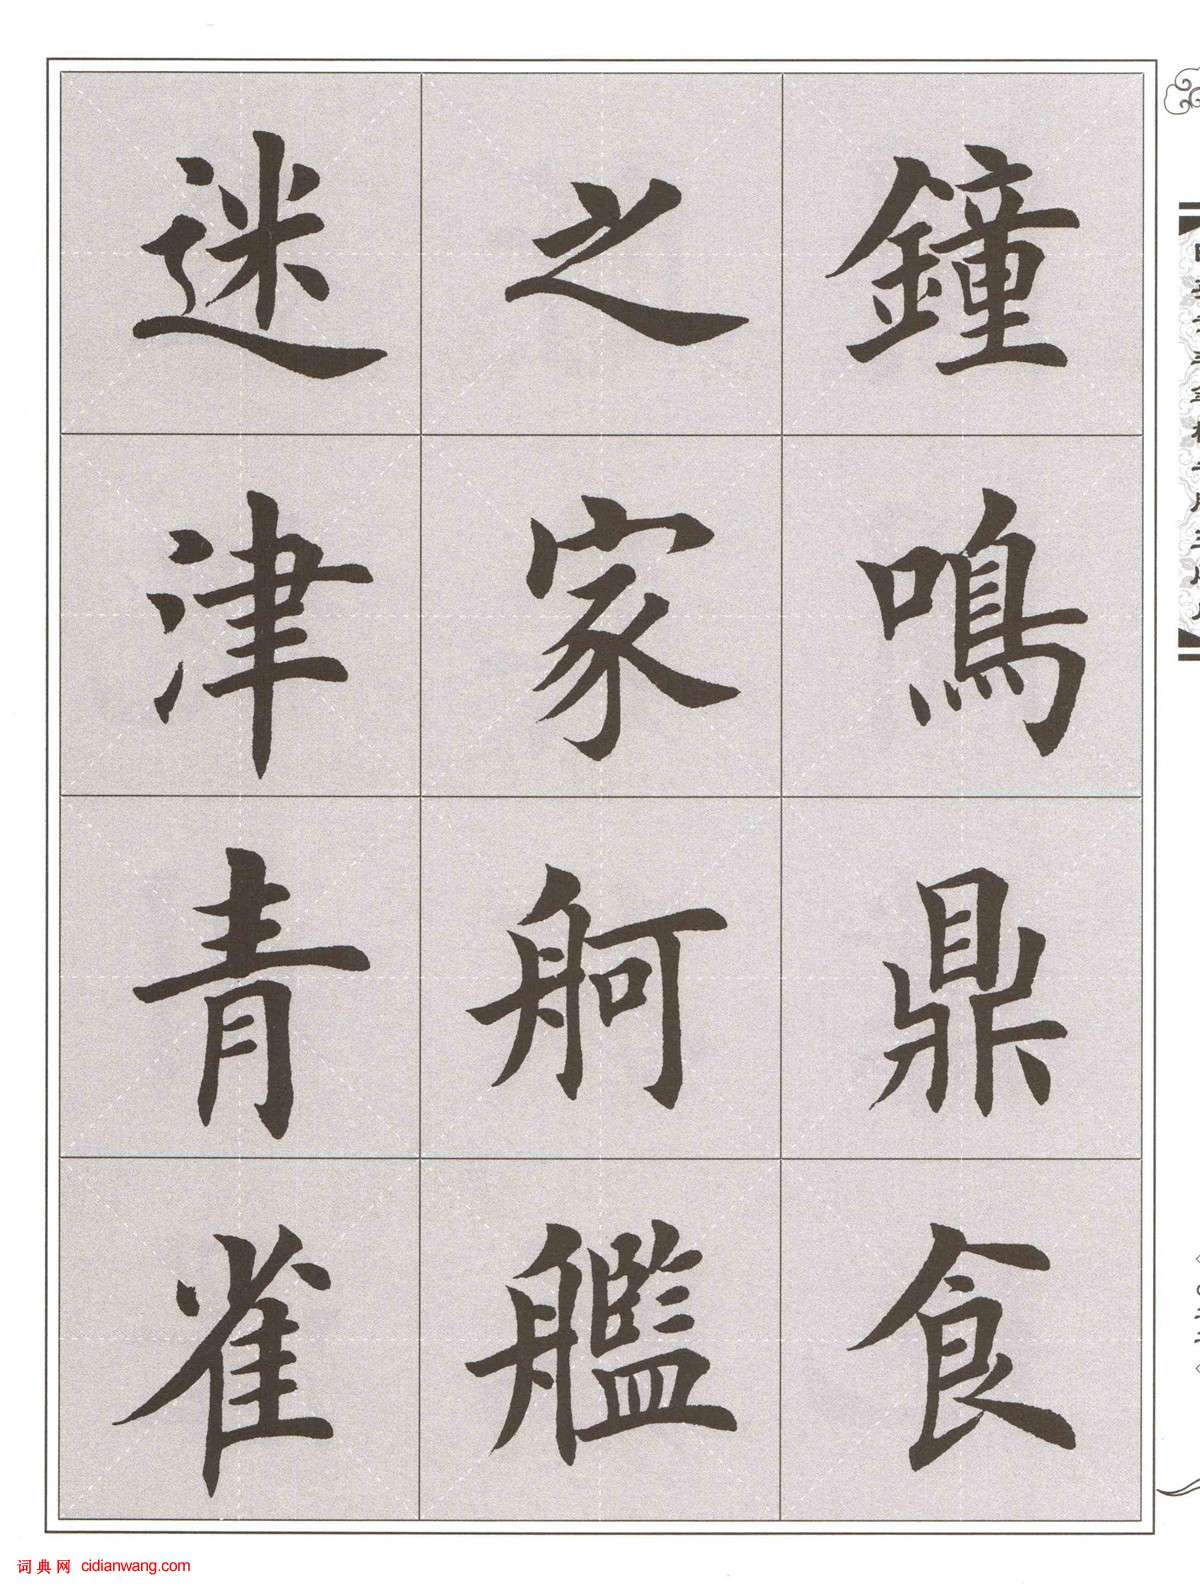 鐘鳴鼎食
之家舸艦
迷津青雀
词典网 cidianwang.com